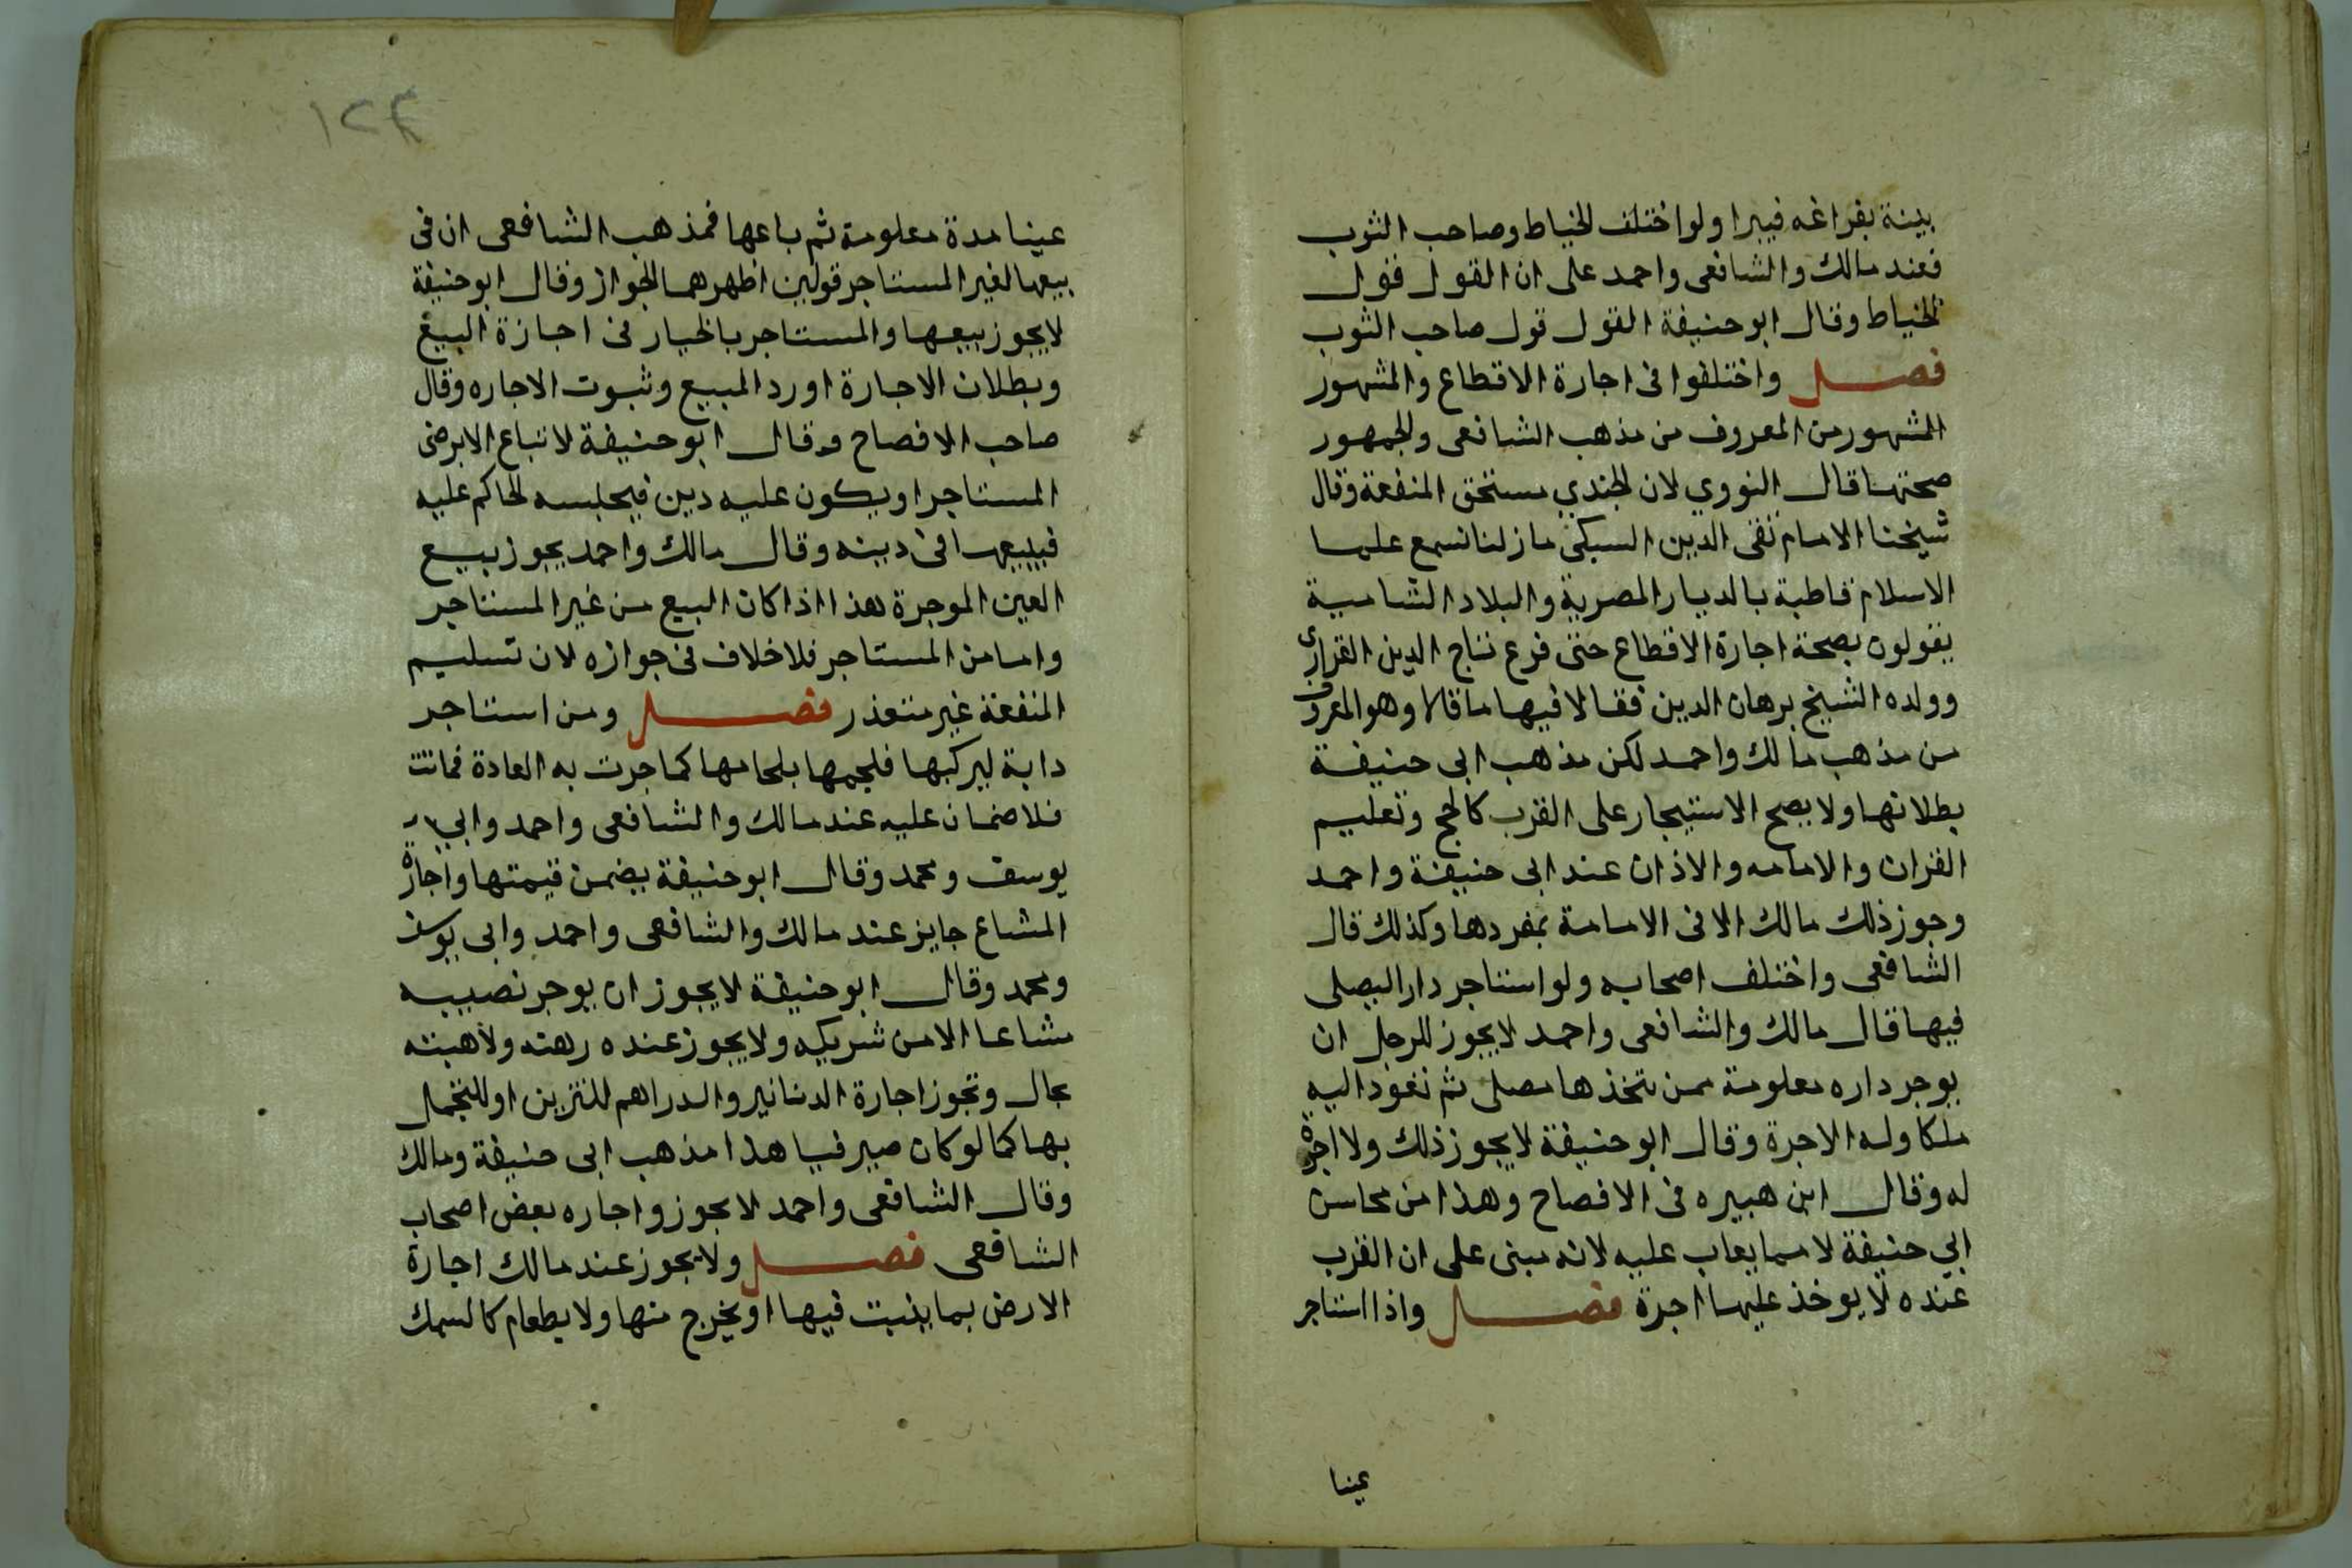 بينة بفراغه فيبرا ولو اختلف الخياط وصاحب الثوب
فعند مالك والشافعى واحمد على ان القول قول
الخياط وقال ابو حنيفة القول قول صاحب الثوب
فصل واختلفوا فى اجارة الاقطاع والمشهور
المشهور من المعروف من مذهب الشافعى والجمهور
صحتها قال النووي لان الجندي مستحق المنفعة وقال
شيخنا الامام تقى الدين السبكى ما زلنا نسمع علما
الاسلام قاطبة بالديار المصرية والبلاد الشامية
يقولون بصحة اجارة الاقطاع حتى فزع تاج الدين القرارى
وولده الشيخ برهان الدين فقالا فيها ما قالا وهو المعروف
من مذهب مالك واحمد لكن مذهب ابى حنيفة
بطلانها ولا يصح الاستيجار على القرب كالحج وتعليم
القران والامامه والاذان عند ابى حنيفة واحمد
وجوز ذلك مالك الا فى الامامة بمفردها وكذلك قال
الشافعى واختلف اصحابه ولو استاجر دار اليصلى
فيها قال مالك والشافعى واحمد لا يجوز للرجل ان
يوجر داره معلومة ممن يتخذها مصلى ثم تعود اليه
ملكا وله الاجرة وقال ابو حنيفة لا يجوز ذلك ولا اجرة
له وقال ابن هبيره فى الافصاح وهذا من محاسن
ابي حنيفة لا مما يعاب عليه لانه مبنى على ان القرب
عنده لا يوخذ عليها اجرة فصل واذا استاجر
عينا
١٢٣
عينا مدة معلومة ثم باعها فمذهب الشافعى ان فى
بيعها لغير المستاجر قولين اظهرهما الجواز وقال ابو حنيفة
لا يجوز بيعها والمستاجر بالخيار فى اجازة البيع
وبطلان الاجارة او رد المبيع وثبوت الاجاره وقال
صاحب الافصاح وقال ابو حنيفة لا تباع الا برضى
المستاجر او يكون عليه دين فيحبسه الحاكم عليه
فيبيعها فى دينه وقال مالك واحمد يجوز بيع
العين الموجرة هذا اذا كان البيع من غير المستاجر
واما من المستاجر فلا خلاف فى جوازه لان تسليم
المنفعة غير متعذر فصل ومن استاجر
دابة ليركبها فلجمها بلجامها كما جرت به العادة فماتت
فلا ضمان عليه عند مالك والشافعى واحمد وابي
يوسف ومحمد وقال ابو حنيفة يضمن قيمتها واجارة
المشاع جايز عند مالك والشافعى واحمد وابى يوسف
ومحمد وقال ابو حنيفة لا يجوز ان يوجر نصيبه
مشاعا الا من شريكه ولا يجوز عنده رهنه ولا هبته
بحال وتجوز اجارة الدنانير والدراهم للتزين او للتجمل
بها كما لو كان صيرفيا هذا مذهب ابى حنيفة ومالك
وقال الشافعى واحمد لا يجوز واجاره بعض اصحاب
الشافعى فصل ولا يجوز عند مالك اجارة
الارض بما ينبت فيها او يخرج منها ولا بطعام كالسمك